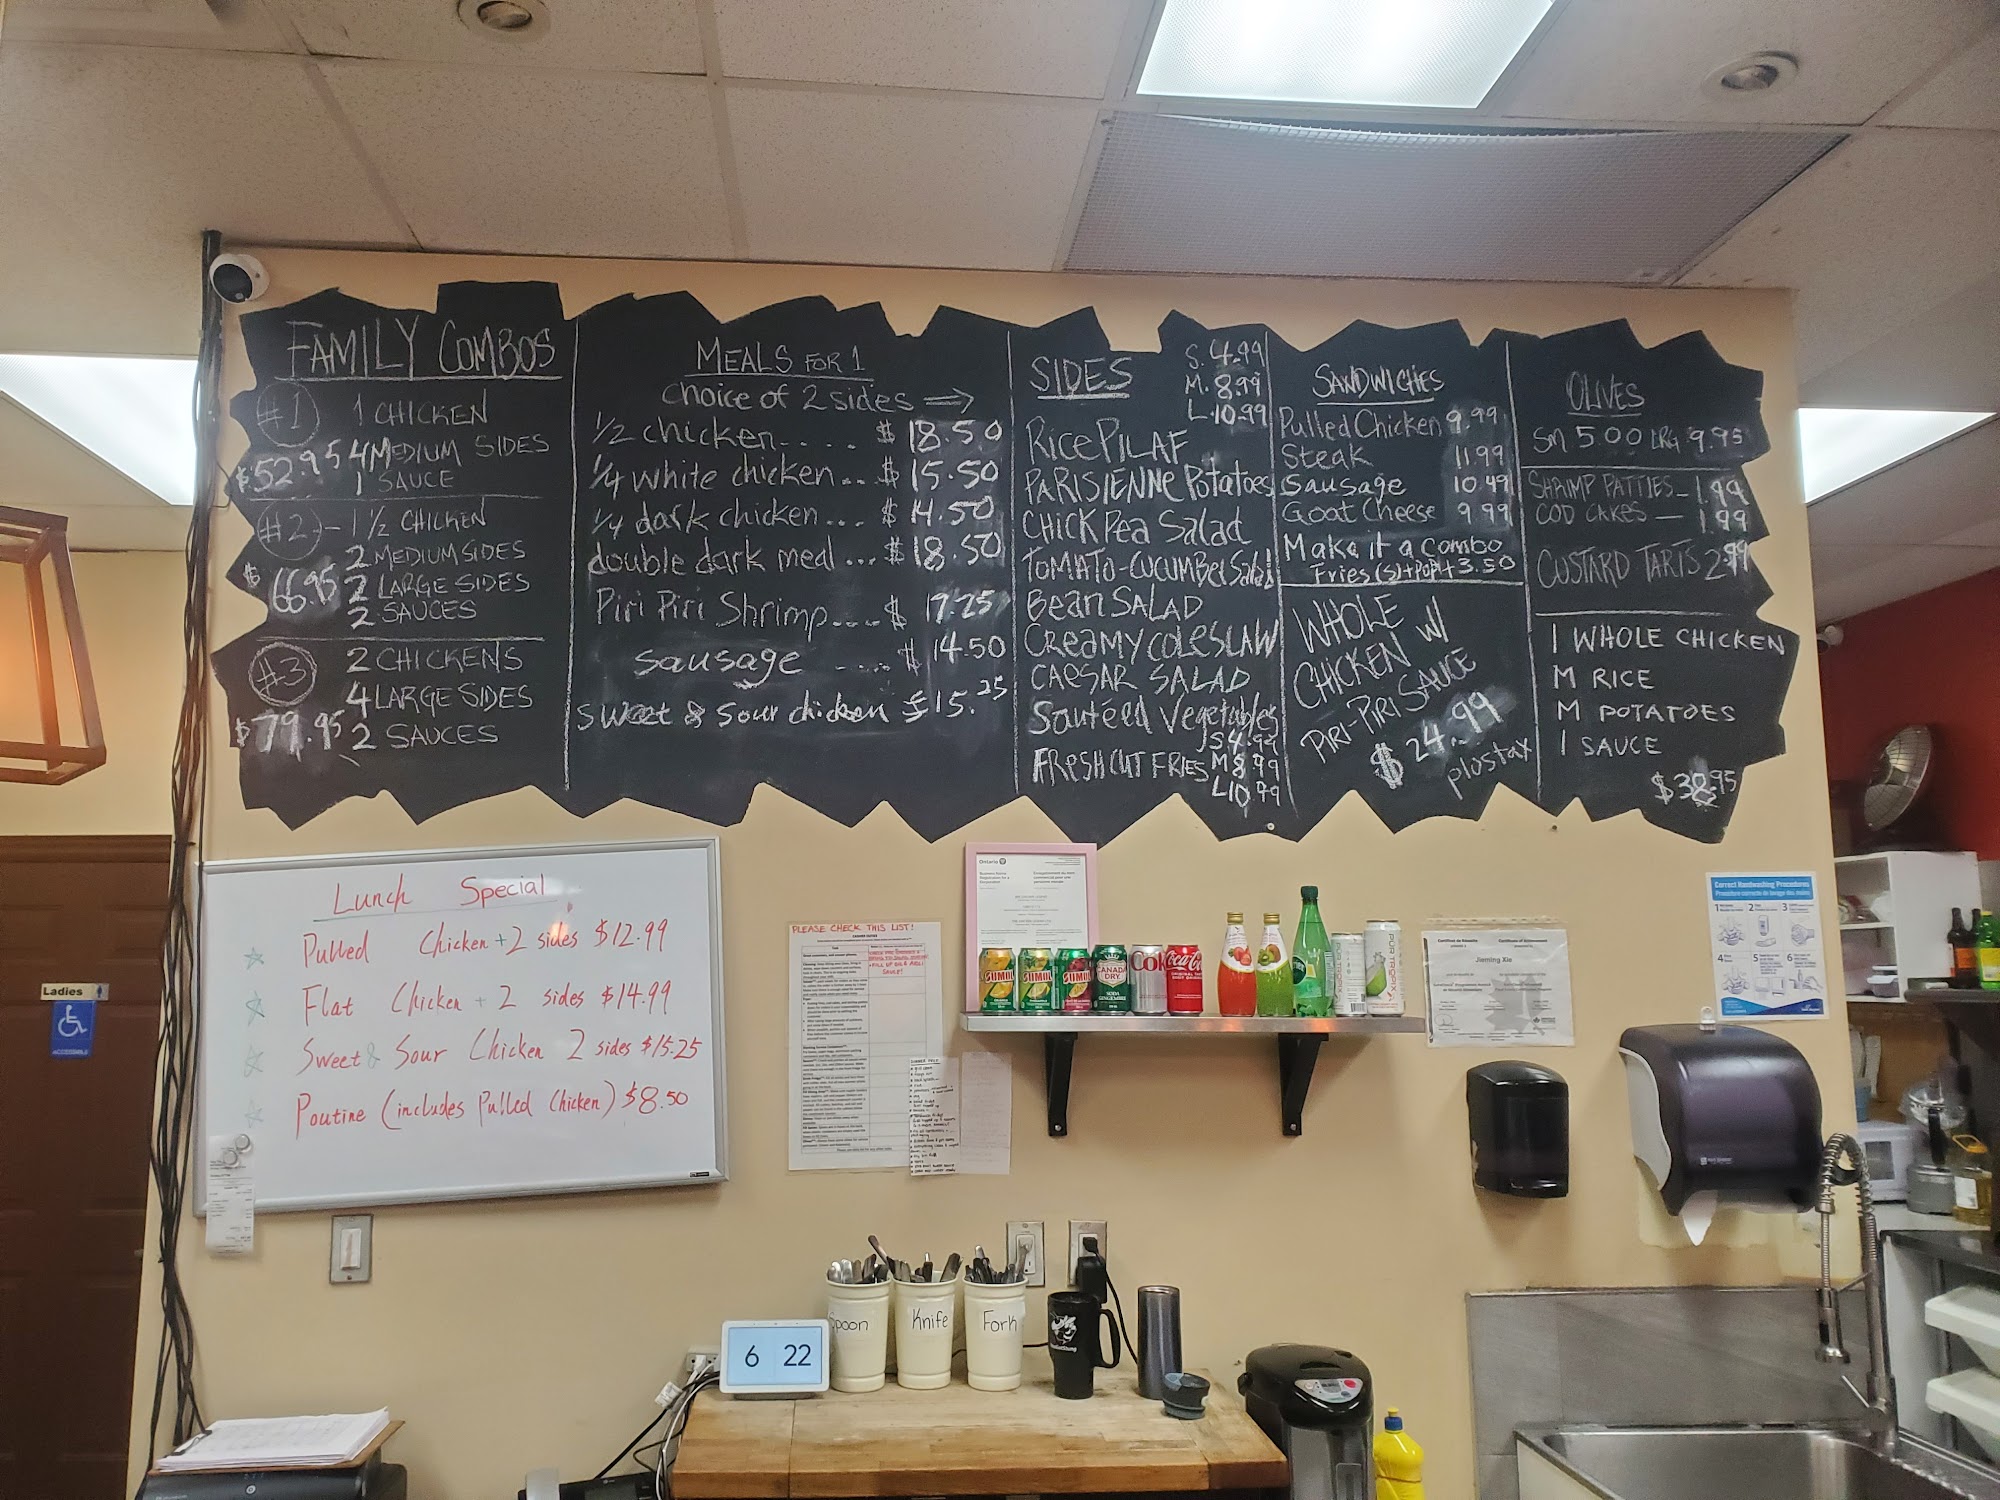 FAMILY COMBOS
#1 1 CHICKEN
$52.95 4 MEDIUM SIDES
1 SAUCE
#2 - 1 1/2 CHICKEN
2 MEDIUM SIDES
$66.95 2 LARGE SIDES
2 SAUCES
#3 2 CHICKENS
4 LARGE SIDES
$79.95 2 SAUCES
MEALS FOR 1
choice of 2 sides →
1/2 chicken.... $18.50
1/4 white chicken... $15.50
1/4 dark chicken... $14.50
double dark meal... $18.50
Piri Piri Shrimp.... $17.25
sausage .... $14.50
sweet & sour chicken $15.25
SIDES
S. 4.99
M. 8.99
L. 10.99
RICE PILAF
PARISIENNE Potatoes
CHICK Pea Salad
TOMATO-CUCUMBER Salad
Bean SALAD
CREAMY COLESLAW
CAESAR SALAD
Sautéed Vegetables
FRESH CUT FRIES
S 4.99
M 8.99
L 10.99
SANDWICHES
Pulled Chicken 9.99
Steak 11.99
Sausage 10.49
Goat Cheese 9.99
Make it a Combo
Fries (s) + Pop + 3.50
WHOLE
CHICKEN W/
PIRI-PIRI SAUCE
$24.99
plus tax
OLIVES
SM 5.00 LRG 9.95
SHRIMP PATTIES - 1.99
COD CAKES — 1.99
CUSTARD TARTS 2.99
1 WHOLE CHICKEN
M RICE
M POTATOES
1 SAUCE
$38.95
Lunch Special
Pulled Chicken + 2 sides $12.99
Flat Chicken + 2 sides $14.99
Sweet & Sour Chicken 2 sides $15.25
Poutine (includes Pulled Chicken) $8.50
PLEASE CHECK THIS LIST!
Ontario
SUMOL
SUMOL
SUMOL
CANADA DRY
Coke
Coca-Cola
Certificate of Achievement
Jieming Xie
Correct Handwashing Procedures
1 2 3
4 5 6
Ladies
ACCESSIBLE
Spoon
Knife
Fork
6 22